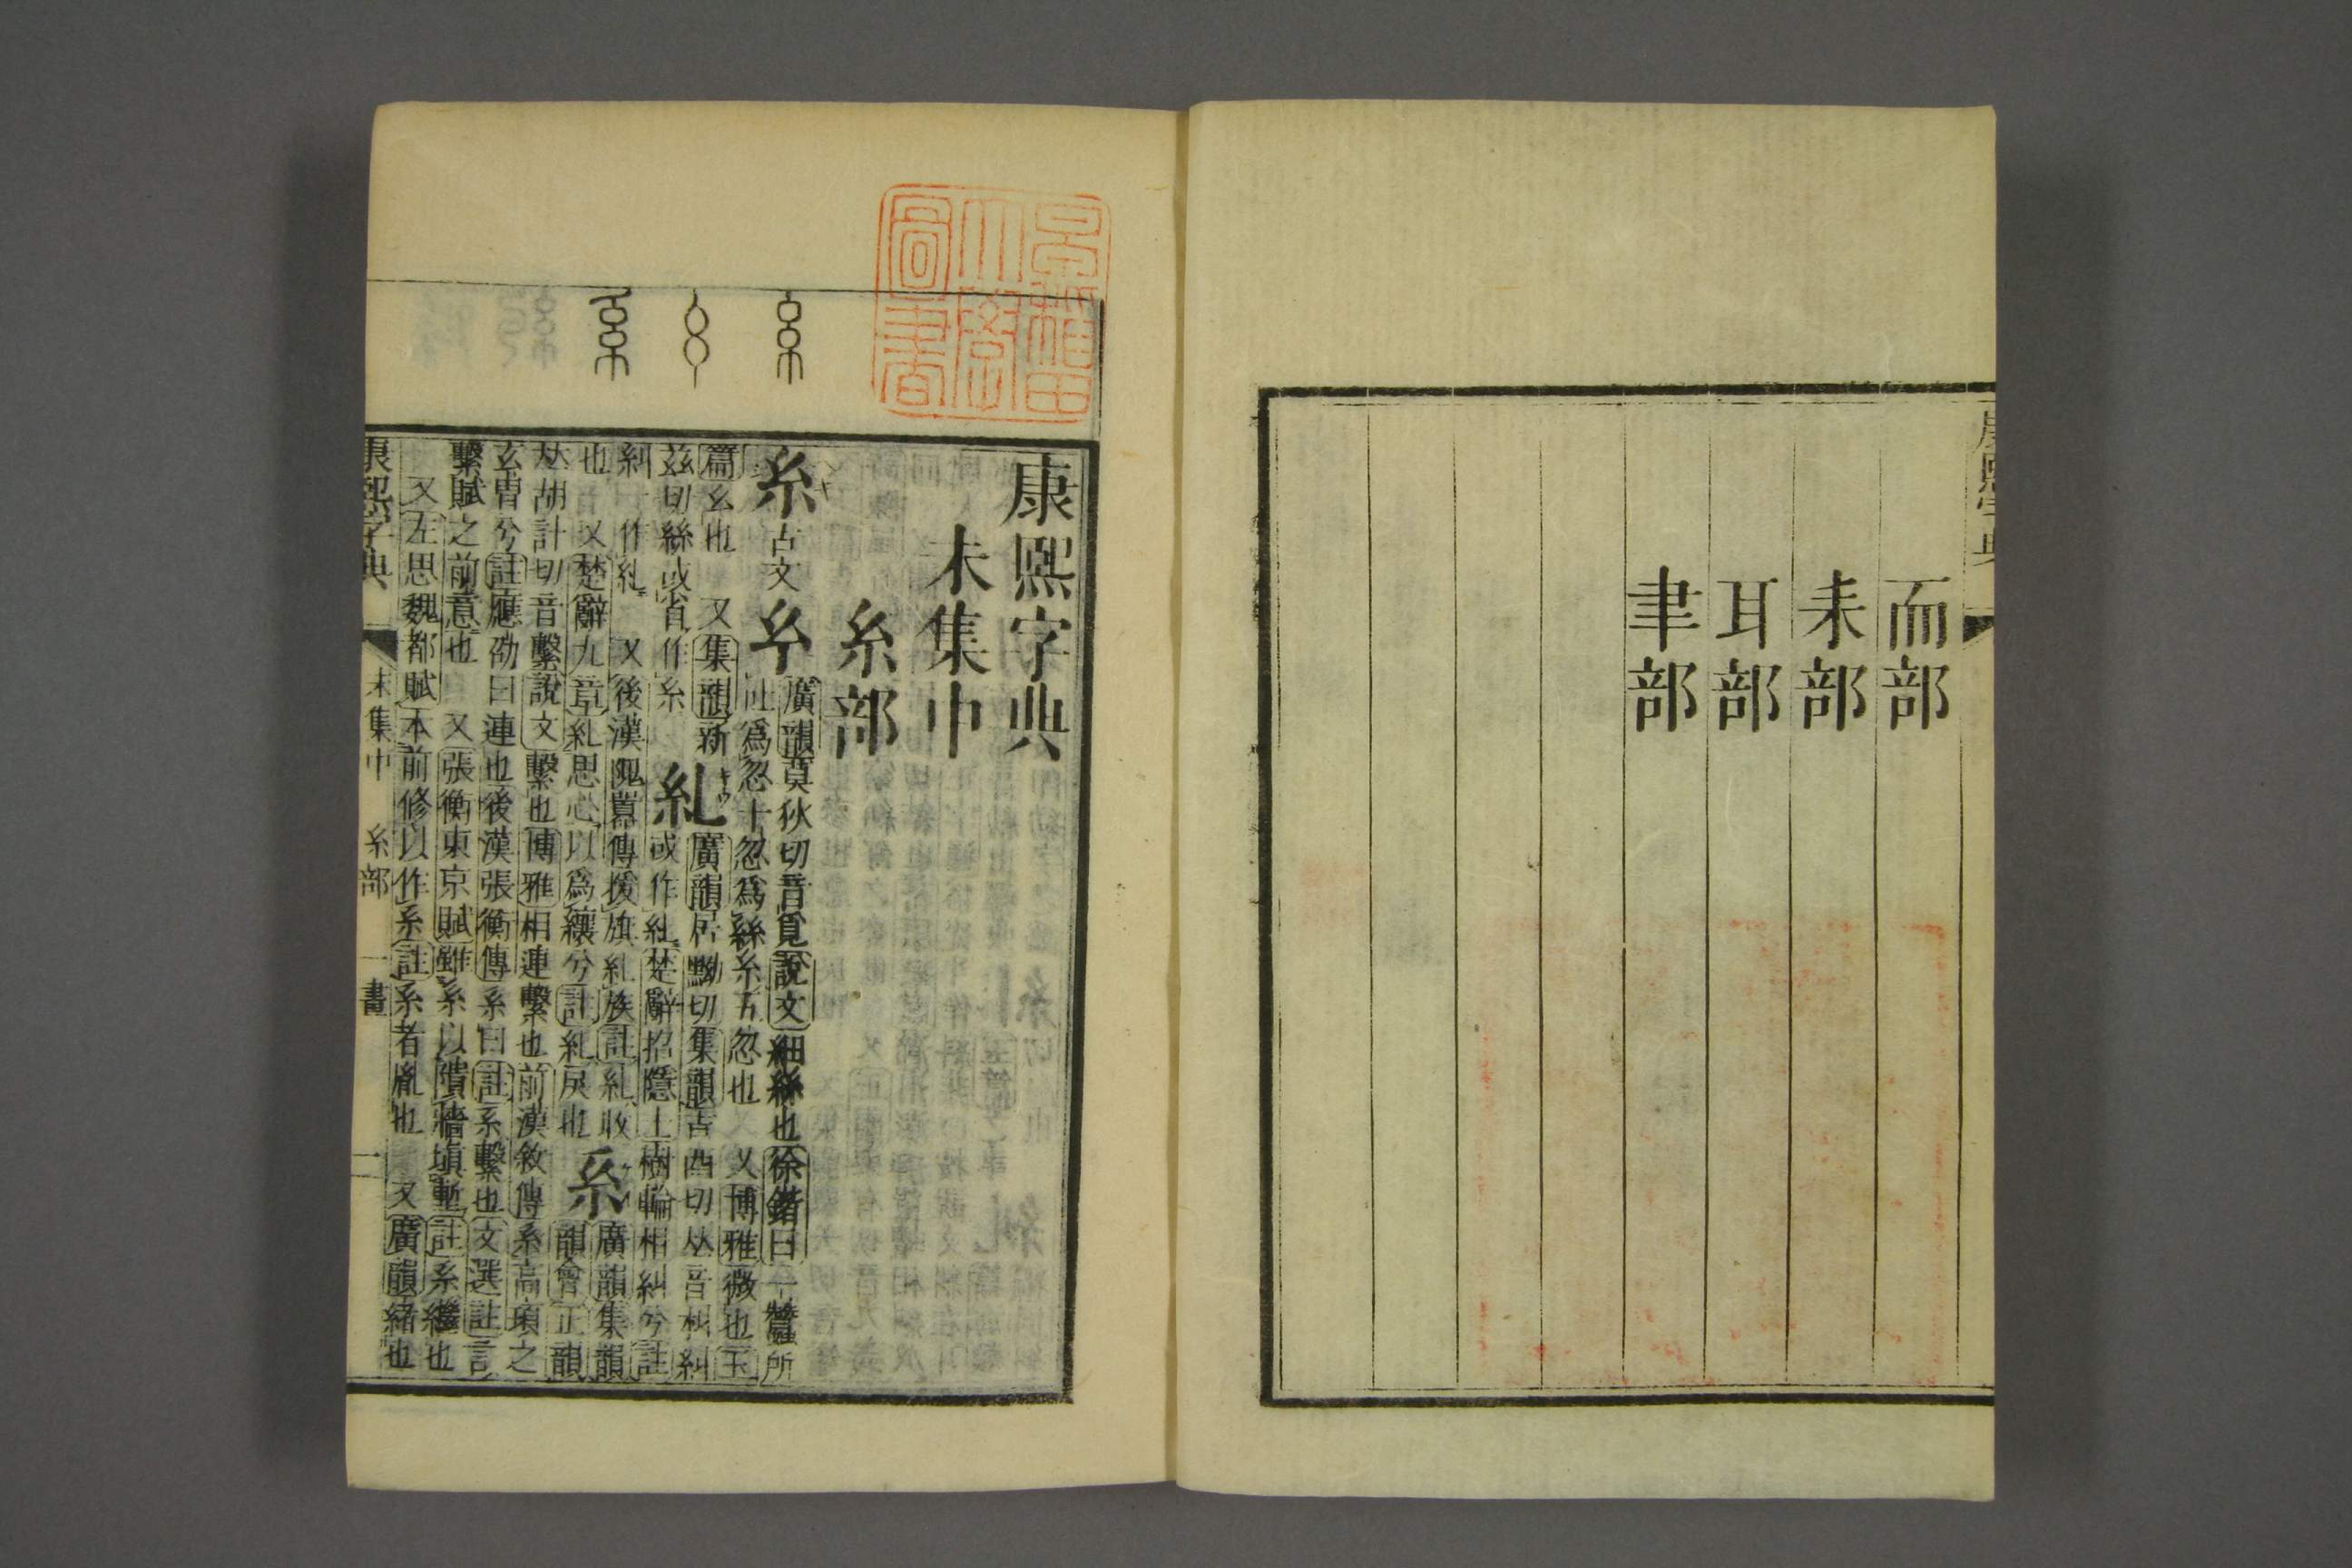 康熙字典
而部
耒部
耳部
聿部
早稻田
大學
圖書
糸
幺
系
康熙字典
未集中
糸部
糸古文𢆯廣韻莫狄切音覓說文細絲也徐鍇曰一蠶所
吐爲忽十忽爲絲糸五忽也 又博雅微也玉
篇幺也 又集韻新
茲切絲或省作糸
糺廣韻居黝切集韻吉酉切𠀤音糾糾
或作糺楚辭招隱士樹輪相糾兮註
糾一作糺 又後漢隗囂傳援旗糺族註糺收
也 又楚辭九章糺思心以爲纕兮註糺戾也
系廣韻集韻
韻會正韻
𠀤胡計切音繫說文繫也博雅相連繫也前漢敘傳系高頊之
玄冑兮註應劭曰連也後漢張衡傳系曰註系繫也文選註言
繫賦之前意也 又張衡東京賦雖系以隤牆塡塹註系繼也
又左思魏都賦本前修以作系註系者胤也 又廣韻緖也
康熙字典 未集中 糸部 一畫 二